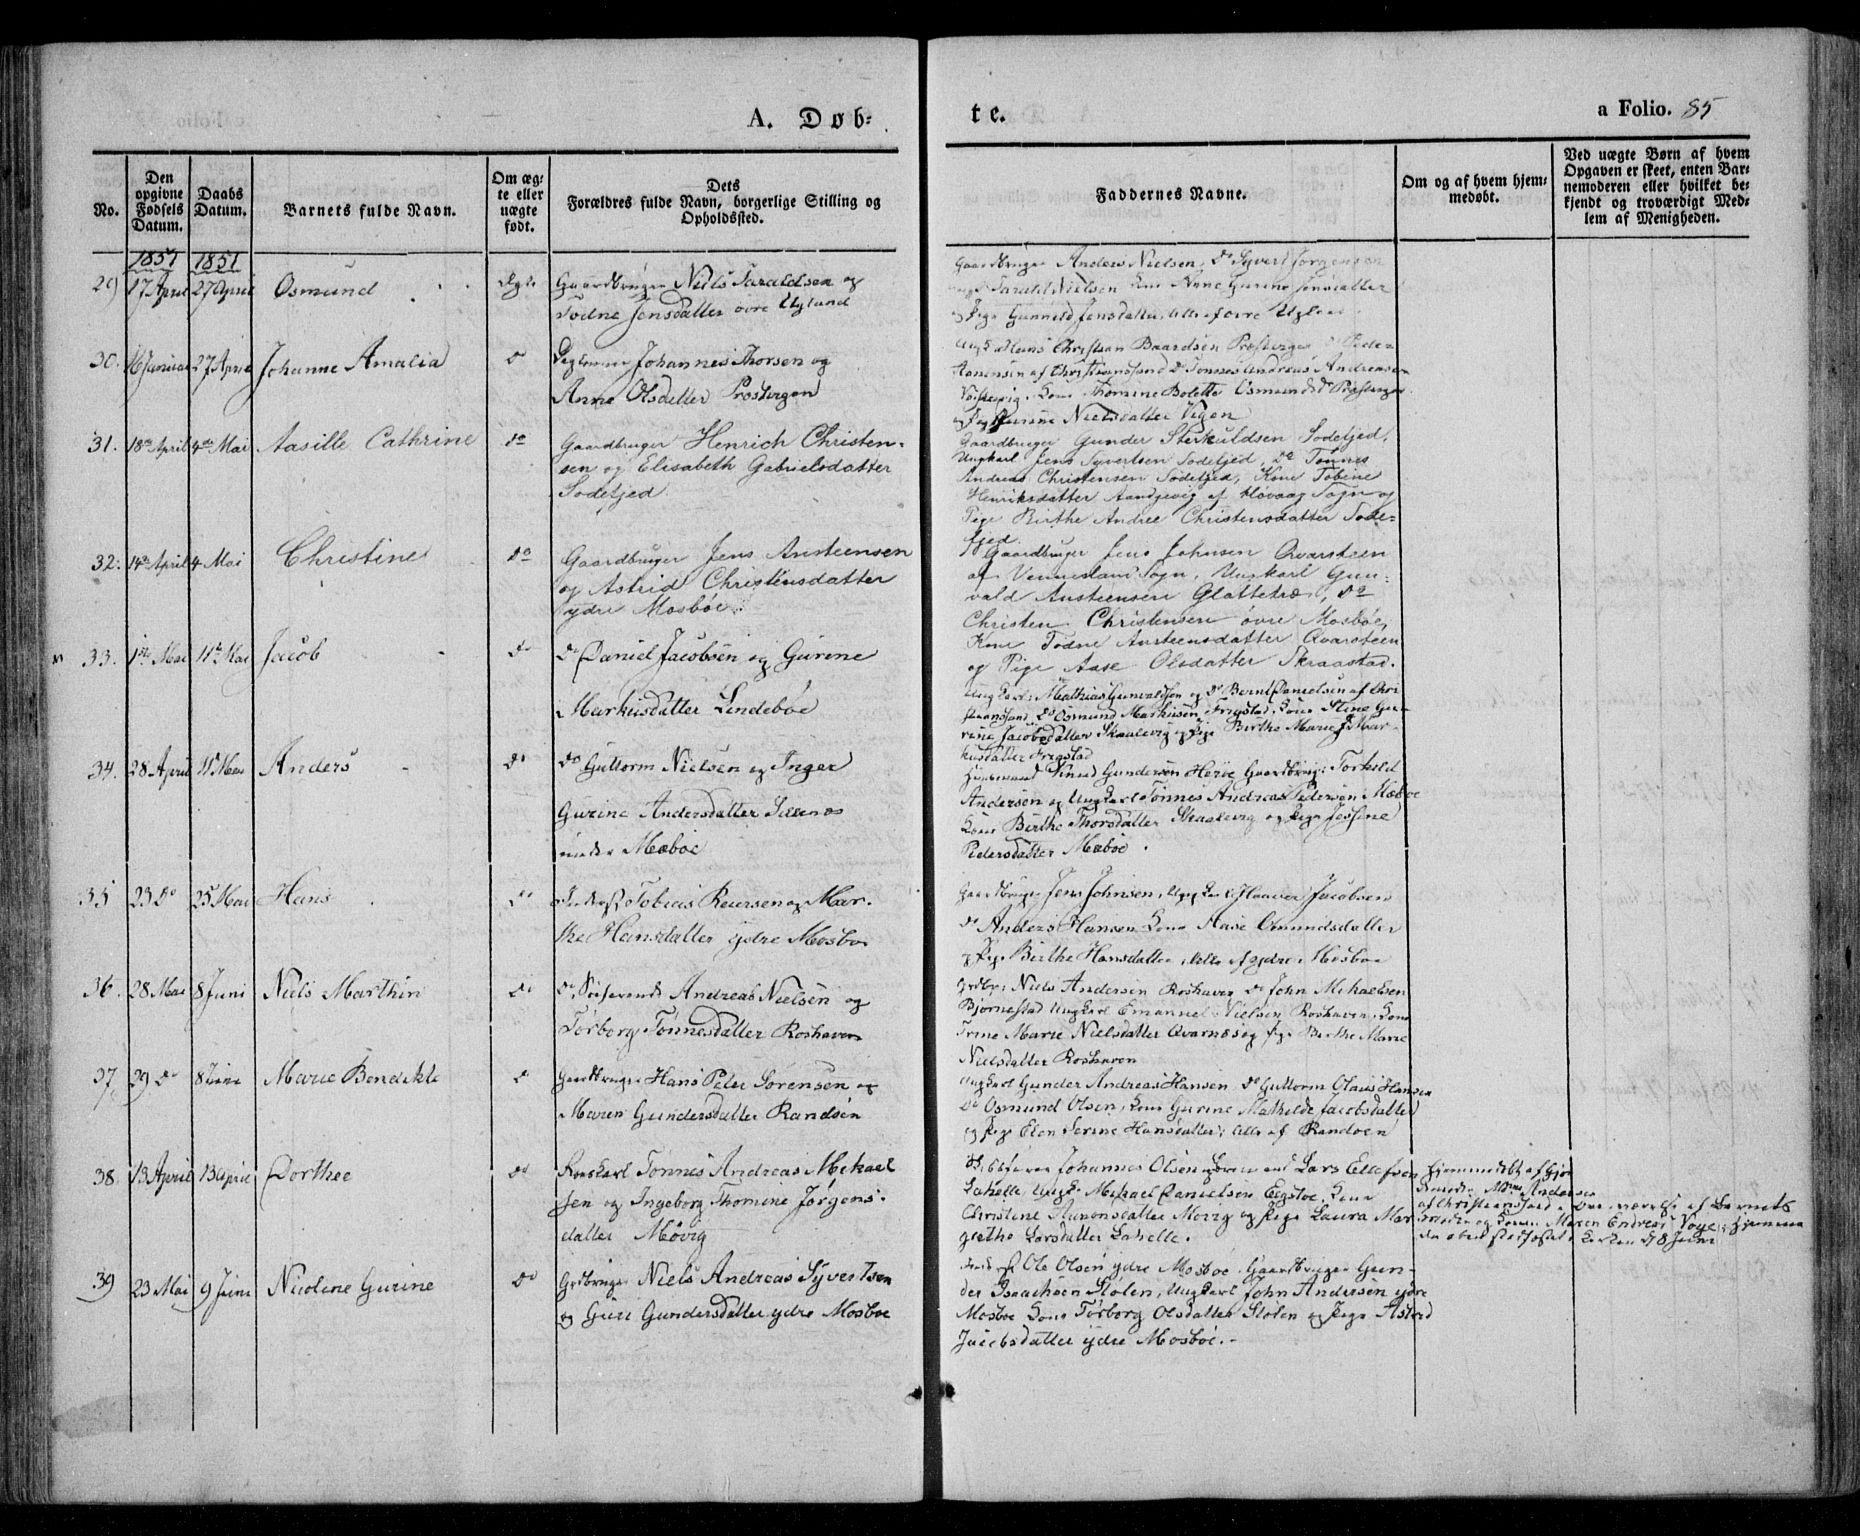 A. Døb-
te.
a Folio. 85
No.
Den opgivne Fødsels Datum.
Daabs Datum.
Barnets fulde Navn.
Om ægte eller uægte født.
Dets
Forældres fulde Navn, borgerlige Stilling og
Opholdssted.
Faddernes Navne.
Om og af hvem hjem-
medøbt.
Ved uægte Børn af hvem
Opgaven er skeet, enten Bar-
nemoderen eller hvilket be-
kjendt og troværdigt Med-
lem af Menigheden.
1851 1851
29 17 April 27 April Osmund Ægte Gaardbruger Niels Taraldsen og
Todne Jensdatter øvre Ugland
Gaardbruger Anders Nielsen, Do Syvert Jørgensen
Tarald Nielsen Kone Anne Gurine Jensdatter
og Pige Gunnild Jensdatter, alle af øvre Ugland
30. 16 Januar 27 April Johanne Amalia Do Johannes Thorsen og
Anne Olsdatter Prostvigen
Hans Christian Baardsen Prostvigen
Aanensen af Christiansand Do Tønnes Andreas Andreasen
Kone Thomine Bolette Osmundsd. Prostvigen
og Pige Nielsdatter Vigen
31. 18de April 4de Mai Aasille Cathrine do Gaardbruger Henrich Christen-
sen og Elisabeth Gabrielsdatter
Sodefjed
Gaardbruger Gunder Sterkuldsen Sodefjed,
Ungkarl Jens Syvertsen Sodefjed, Do Tønnes
Andreas Christensen Sodefjed, Kone Tobine
Henriksdatter Aandgevig af Høvaag Sogn og
Pige Birthe Andree Christensdatter Sode-
fjed.
32. 14de April 4 Mai Christine do Gaardbruger Jens Austeensen
og Astrid Christensdatter
ydre Mosbøe.
Gaardbruger Jens Johnsen Qvarsteen
af Vennesland Sogn, Ungkarl Gun-
vald Austeensen Glattetræ, do
Christen Christensen øvre Mosbøe,
Kone Todne Austeensdatter Qvarsteen
og Pige Aase Olsdatter Skraastad.
33. 1ste Mai 11te Mai Jacob Do Do Daniel Jacobsen og Gurine
Markusdatter Lindebøe
Ungkarl: Mathias Gunvaldsen og Do Bernt Danielsen af Chri-
stiansand, Do Osmund Markusen Frøstad, Kone Stine Gu-
rine Jacobsdatter Skaalevig og Pige Birthe Marie Mar-
kusdatter Frøstad
34. 28 April 11te Mai Anders Do Do Guttorm Nielsen og Inger
Gurine Andersdatter
under Mæbøe
Huusmand Gundersen Herøe Gaardbrug: Torkild
Andersen og Ungkarl Tønnes Andreas Pedersen Mæbøe
Kone Birthe Thorsdatter Skaalevig og Pige Jessine
Pedersdatter Mæbøe.
35 23 Do 25 Mai Hans Do Tobias Reiersen og Mar-
the Hansdatter ydre Mosbøe
Gaardbruger Jens Johnsen, Ungkarl Haaver Jacobsen
Do Anders Hansen Kone Aase Osmundsdatter
og Pige Birthe Hansdatter, alle af ydre Mosbøe
36. 28 Mai 8 Juni Niels Marthin Do Do Søefarende Andreas Nielsen og
Tørborg Tønnesdatter Roshaven
Grdbr: Niels Andersen Roshaven Do John Mikaelsen
Bjørnestad Ungkarl Emanuel Nielsen Roshaven, Kone
Trine Marie Nielsdatter Qvarnes og Pige Birthe Marie
Nielsdatter Roshaven
37. 29 Do 8 Juni Marie Bendikte Do Gaardbruger Hans Peter Sørensen og
Maren Gundersdatter Randøen
Ungkarl Gunder Andreas Hansen Do Guttorm Olaus Hansen
Do Osmund Olsen, Kone Gurine Mathilde Jacobsdatter
og Pige Elen Serine Hansdatter; alle af Randøen
38. 13 April 13 April Dorthee Do Tønnes Andreas Mikael
sen og Ingeborg Thomine Jørgens-
datter Møvig
Johannes Olsen Lars Ellefsen
Lahelle, Ungk. Mikael Danielsen Eegstøe, Kone
Christine Aanonsdatter Møvig og Pige Laura Mar-
grethe Larsdatter Lahelle.
Hjemmedøbt af Gjor-
demoder Andersen
af Christiansand i Overværelse af Barnets
Moder og Konen Maren Endresd Voje; hjemme
daaben stadfæstet i Kirken d 8 Juni
39 23 Mai 9 Juni Nicoline Gurine Do Grdbruger Niels Andreas Syvertsen
og Guri Gundersdatter ydre Mosbøe
Ole Olsen ydre Mosbøe, Gaardbruger Gun-
der Isaachsen Stolen, Ungkarl John Andersen ydre
Mosbøe Kone Tørborg Olsdatter Stolen og Pige Astrid
Jacobsdatter ydre Mosbøe.